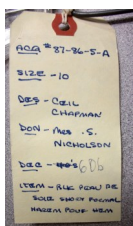 ACQ # 87-86-5-A
SIZE - 10
DES - CEIL
CHAPMAN
DON - MRS. S.
NICHOLSON
DEC - 40's 60s
ITEM - BLUE PEAU DE
SOIE SHORT FORMAL
HAREM POUF HEM